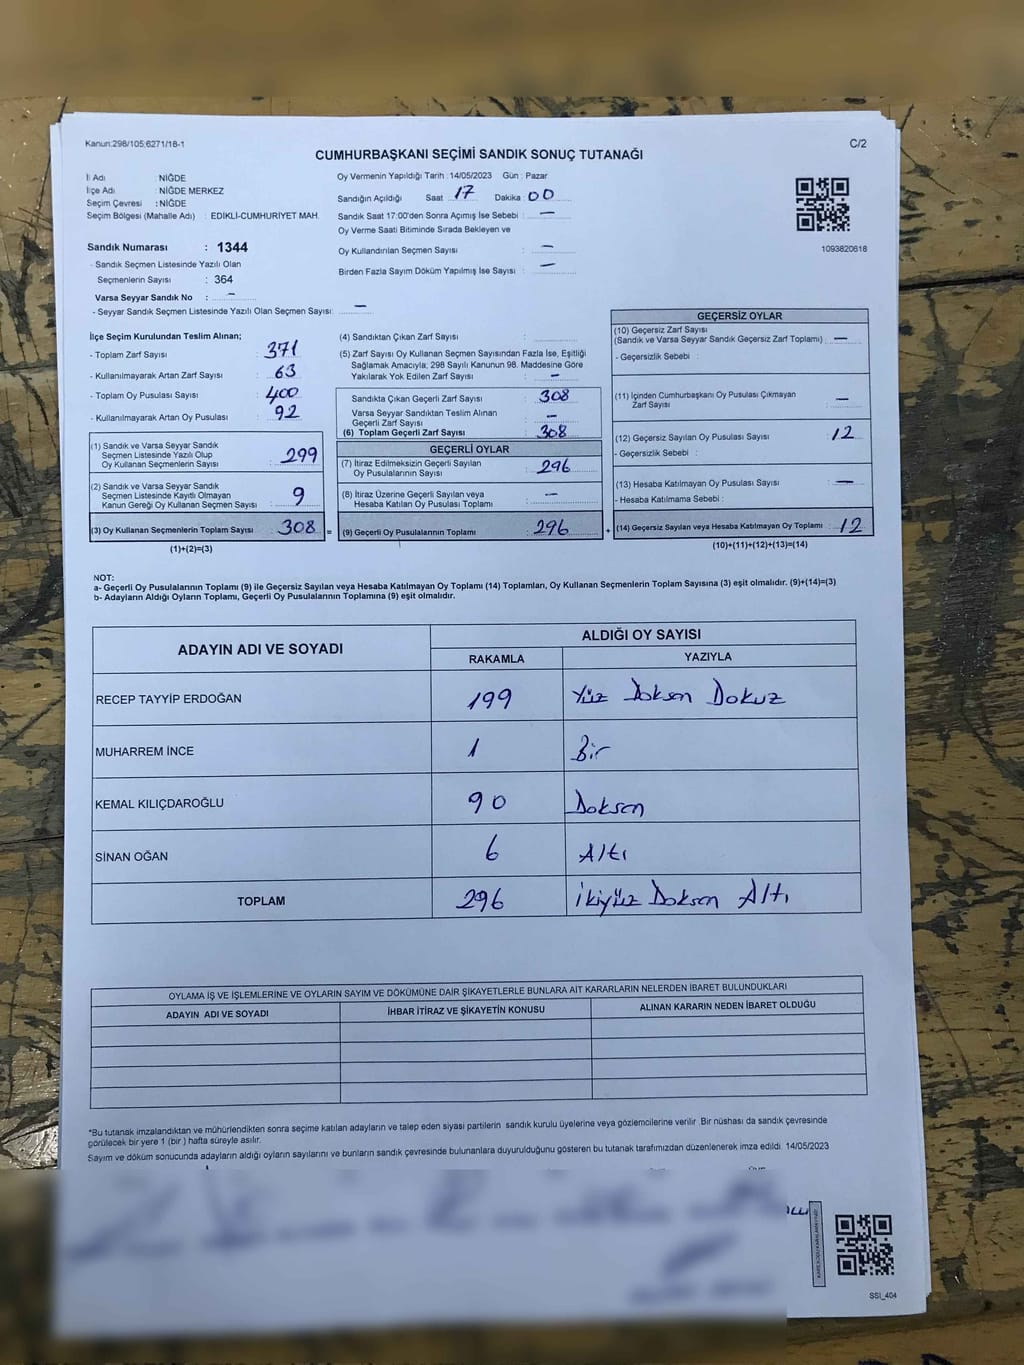 Kanun:298/105;6271/18-1
C/2
CUMHURBAŞKANI SEÇİMİ SANDIK SONUÇ TUTANAĞI
İl Adı : NİĞDE
İlçe Adı : NİĞDE MERKEZ
Seçim Çevresi : NİĞDE
Seçim Bölgesi (Mahalle Adı) : EDİKLİ-CUMHURİYET MAH.
Oy Vermenin Yapıldığı Tarih : 14/05/2023 Gün : Pazar
Sandığın Açıldığı Saat 17 Dakika 00
Sandık Saat 17:00'den Sonra Açımış İse Sebebi : —
Oy Verme Saati Bitiminde Sırada Bekleyen ve
Oy Kullandırılan Seçmen Sayısı : —
Birden Fazla Sayım Döküm Yapılmış İse Sayısı : —
1093820618
Sandık Numarası : 1344
- Sandık Seçmen Listesinde Yazılı Olan
Seçmenlerin Sayısı : 364
Varsa Seyyar Sandık No : —
- Seyyar Sandık Seçmen Listesinde Yazılı Olan Seçmen Sayısı: —
İlçe Seçim Kurulundan Teslim Alınan;
- Toplam Zarf Sayısı : 371
- Kullanılmayarak Artan Zarf Sayısı : 63
- Toplam Oy Pusulası Sayısı : 400
- Kullanılmayarak Artan Oy Pusulası : 92
(1) Sandık ve Varsa Seyyar Sandık
Seçmen Listesinde Yazılı Olup
Oy Kullanan Seçmenlerin Sayısı : 299
(2) Sandık ve Varsa Seyyar Sandık
Seçmen Listesinde Kayıtlı Olmayan
Kanun Gereği Oy Kullanan Seçmen Sayısı : 9
(3) Oy Kullanan Seçmenlerin Toplam Sayısı : 308 =
(1)+(2)=(3)
(4) Sandıktan Çıkan Zarf Sayısı :
(5) Zarf Sayısı Oy Kullanan Seçmen Sayısından Fazla İse, Eşitliği
Sağlamak Amacıyla; 298 Sayılı Kanunun 98. Maddesine Göre
Yakılarak Yok Edilen Zarf Sayısı : —
Sandıkta Çıkan Geçerli Zarf Sayısı : 308
Varsa Seyyar Sandıktan Teslim Alınan
Geçerli Zarf Sayısı : —
(6) Toplam Geçerli Zarf Sayısı : 308
GEÇERLİ OYLAR
(7) İtiraz Edilmeksizin Geçerli Sayılan
Oy Pusulalarının Sayısı : 296
(8) İtiraz Üzerine Geçerli Sayılan veya
Hesaba Katılan Oy Pusulası Toplamı : —
(9) Geçerli Oy Pusulalarının Toplamı : 296 +
GEÇERSİZ OYLAR
(10) Geçersiz Zarf Sayısı
(Sandık ve Varsa Seyyar Sandık Geçersiz Zarf Toplamı) : —
- Geçersizlik Sebebi :
(11) İçinden Cumhurbaşkanı Oy Pusulası Çıkmayan
Zarf Sayısı : —
(12) Geçersiz Sayılan Oy Pusulası Sayısı : 12
- Geçersizlik Sebebi :
(13) Hesaba Katılmayan Oy Pusulası Sayısı : —
- Hesaba Katılmama Sebebi :
(14) Geçersiz Sayılan veya Hesaba Katılmayan Oy Toplamı : 12
(10)+(11)+(12)+(13)=(14)
NOT:
a- Geçerli Oy Pusulalarının Toplamı (9) ile Geçersiz Sayılan veya Hesaba Katılmayan Oy Toplamı (14) Toplamları, Oy Kullanan Seçmenlerin Toplam Sayısına (3) eşit olmalıdır. (9)+(14)=(3)
b- Adayların Aldığı Oyların Toplamı, Geçerli Oy Pusulalarının Toplamına (9) eşit olmalıdır.
ADAYIN ADI VE SOYADI ALDIĞI OY SAYISI
RAKAMLA YAZIYLA
RECEP TAYYİP ERDOĞAN 199 Yüz Doksen Dokuz
MUHARREM İNCE 1 Bir
KEMAL KILIÇDAROĞLU 90 Doksen
SİNAN OĞAN 6 Altı
TOPLAM 296 İkiyüz Doksen Altı
OYLAMA İŞ VE İŞLEMLERİNE VE OYLARIN SAYIM VE DÖKÜMÜNE DAİR ŞİKAYETLERLE BUNLARA AİT KARARLARIN NELERDEN İBARET BULUNDUKLARI
ADAYIN ADI VE SOYADI İHBAR İTİRAZ VE ŞİKAYETİN KONUSU ALINAN KARARIN NEDEN İBARET OLDUĞU
*Bu tutanak imzalandıktan ve mühürlendikten sonra seçime katılan adayların ve talep eden siyasi partilerin sandık kurulu üyelerine veya gözlemcilerine verilir. Bir nüshası da sandık çevresinde
görülecek bir yere 1 (bir) hafta süreyle asılır.
Sayım ve döküm sonucunda adayların aldığı oyların sayılarını ve bunların sandık çevresinde bulunanlara duyurulduğunu gösteren bu tutanak tarafımızdan düzenlenerek imza edildi. 14/05/2023
SSİ_404